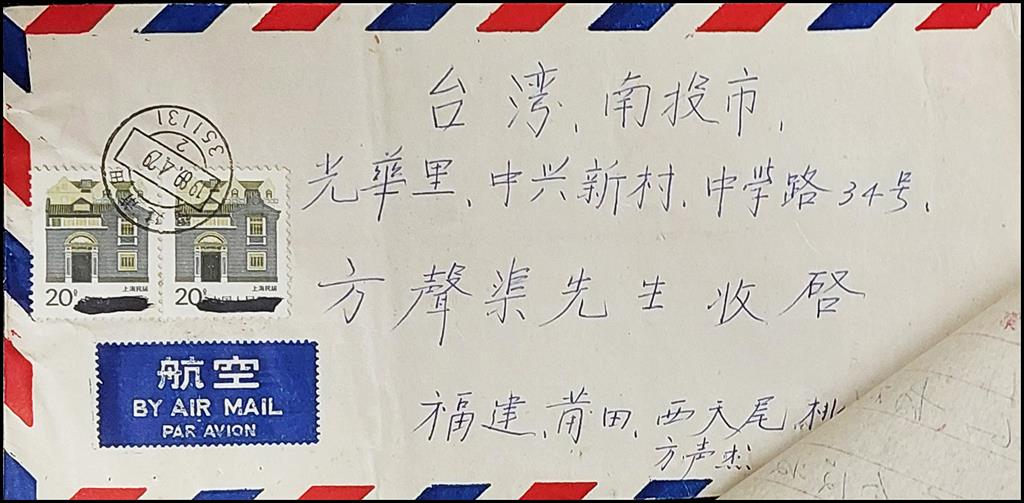 台湾、南投市、
光華里、中兴新村、中学路34号、
方聲渠先生收啓
福建、莆田、西天尾、桃
方声杰
351131
2
上海民居
20分
上海民居
20分
航空
BY AIR MAIL
PAR AVION